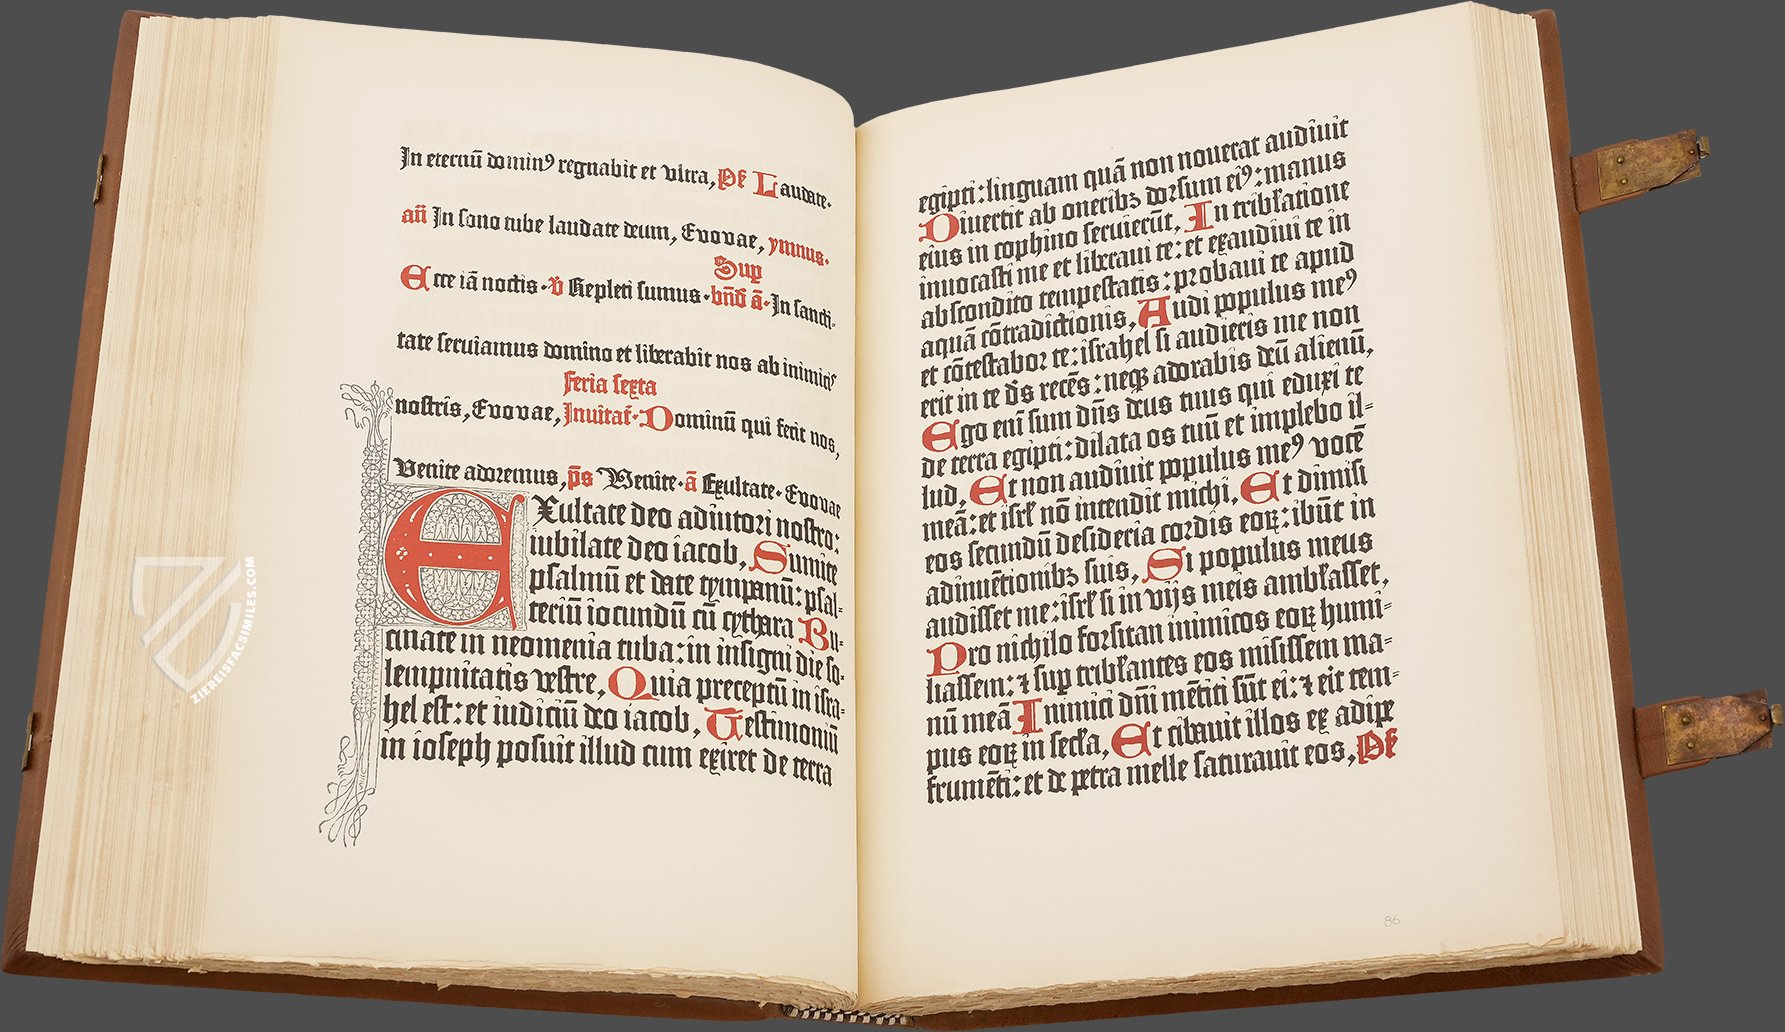 In eternū dominꝰ regnabit et vltra, P̄s Laudate.
añ In sono tube laudate deum, Evovae, ymnus.
Sup
Ecce iā noctis. v̄ Repleti sumus. bn̄d ā. In sancti-
tate seruiamus domino et liberabit nos ab inimicis
feria sexta
nostris, Evovae, Inuitat̄. Dominū qui fecit nos,
Venite adoremus, p̄s Venite. ā Exultate. Evovae
EXultate deo adiutori nostro:
iubilate deo iacob, Sumite
psalmū et date tympanū: psal-
teriū iocundū cū cythara Bu-
cinate in neomenia tuba: in insigni die so-
lempnitatis vestre, Quia preceptū in isra-
hel est: et iudiciū deo iacob, Testimoniū
in ioseph posuit illud cum exiret de terra
egipti: linguam quā non nouerat audiuit
Diuertit ab oneribꝫ dorsum eiꝰ: manus
eius in cophino seruierūt, In tribl̄atione
inuocasti me et liberaui te: et exaudiui te in
abscondito tempestatis: probaui te apud
aquā cōtradictionis, Audi populus meꝰ
et cōtestabor te: israhel si audieris me non
erit in te d̄s recēs: neqꝫ adorabis deū alienū,
Ego enī sum dn̄s deus tuus qui eduxi te
de terra egipti: dilata os tuū et implebo il-
lud, Et non audiuit populus meꝰ vocē
meā: et isrl̄ nō intendit michi, Et dimisi
eos secundū desideria cordis eoꝝ: ibūt in
adinuētionibꝫ suis, Si populus meus
audisset me: isrl̄ si in vijs meis ambl̄asset,
Pro nichilo forsitan inimicos eoꝝ humi-
liassem: ⁊ sup tribl̄antes eos misissem ma-
nū meā Inimici dn̄i mētiti sūt ei: ⁊ eit tem-
pus eoꝝ in secl̄a, Et cibauit illos ex adipe
frumēti: et de petra melle saturauit eos, P̄s
86
ZIEREISFACSIMILES.COM